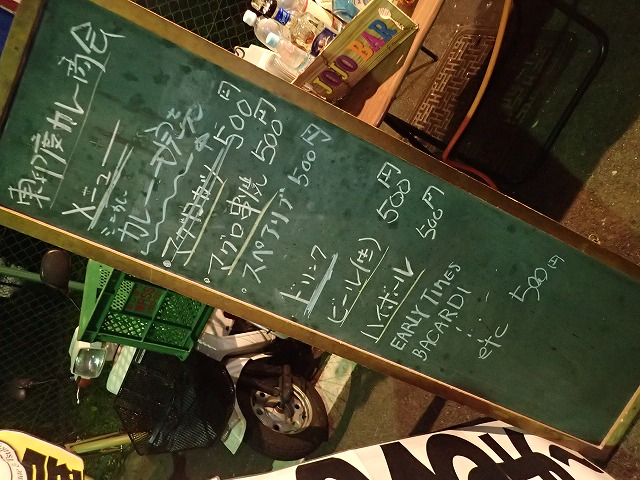 東印度カレー商会
メニュー
カレー 完売
・マグロカマ 500円
・マグロ串焼 500円
・スペアリブ 500円
ドリンク
ビール(生) 500円
ハイボール 500円
EARLY TIMES
BACARDI
etc 500円
JOJO BAR